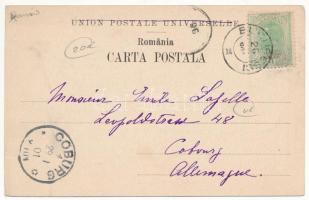 UNION POSTALE UNIVERSELLE
România
CARTA POSTALA
Monsieur Emile Lafelle
Leopoldstrasse 48
Cobourg
Allemagne.
COBURG
01